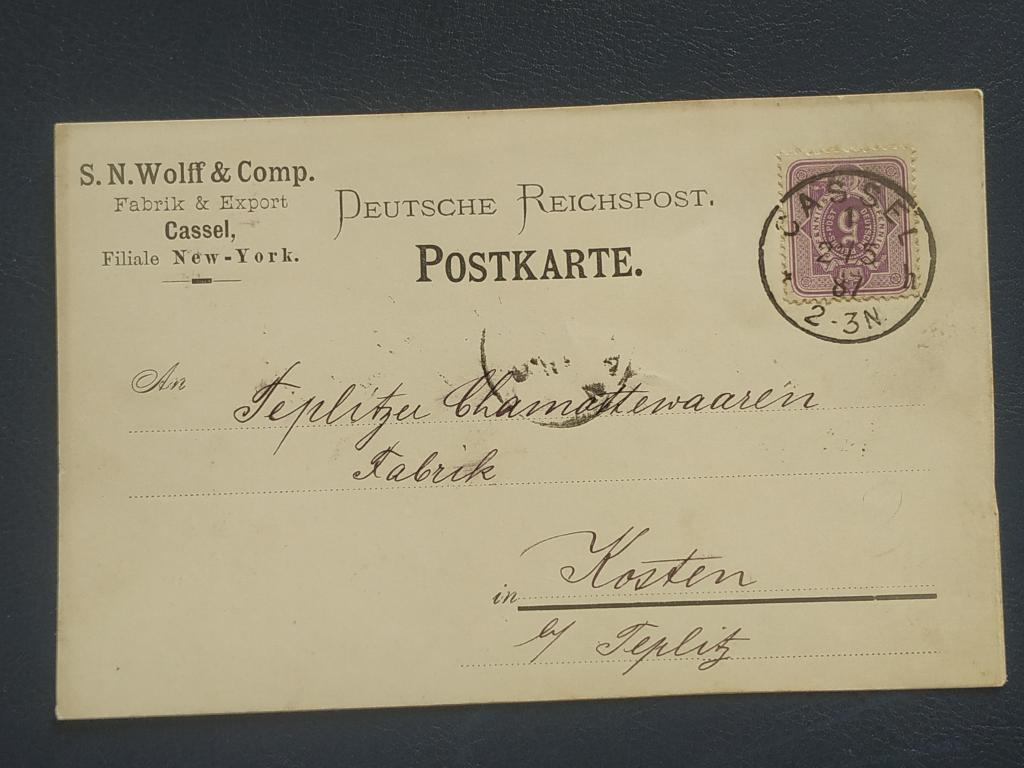 S. N. Wolff & Comp.
Fabrik & Export
Cassel,
Filiale New-York.
DEUTSCHE REICHSPOST.
POSTKARTE.
CASSEL
87
2-3N
5
An
Teplitzer Chamottewaaren
Fabrik
in Kosten
b/ Teplitz